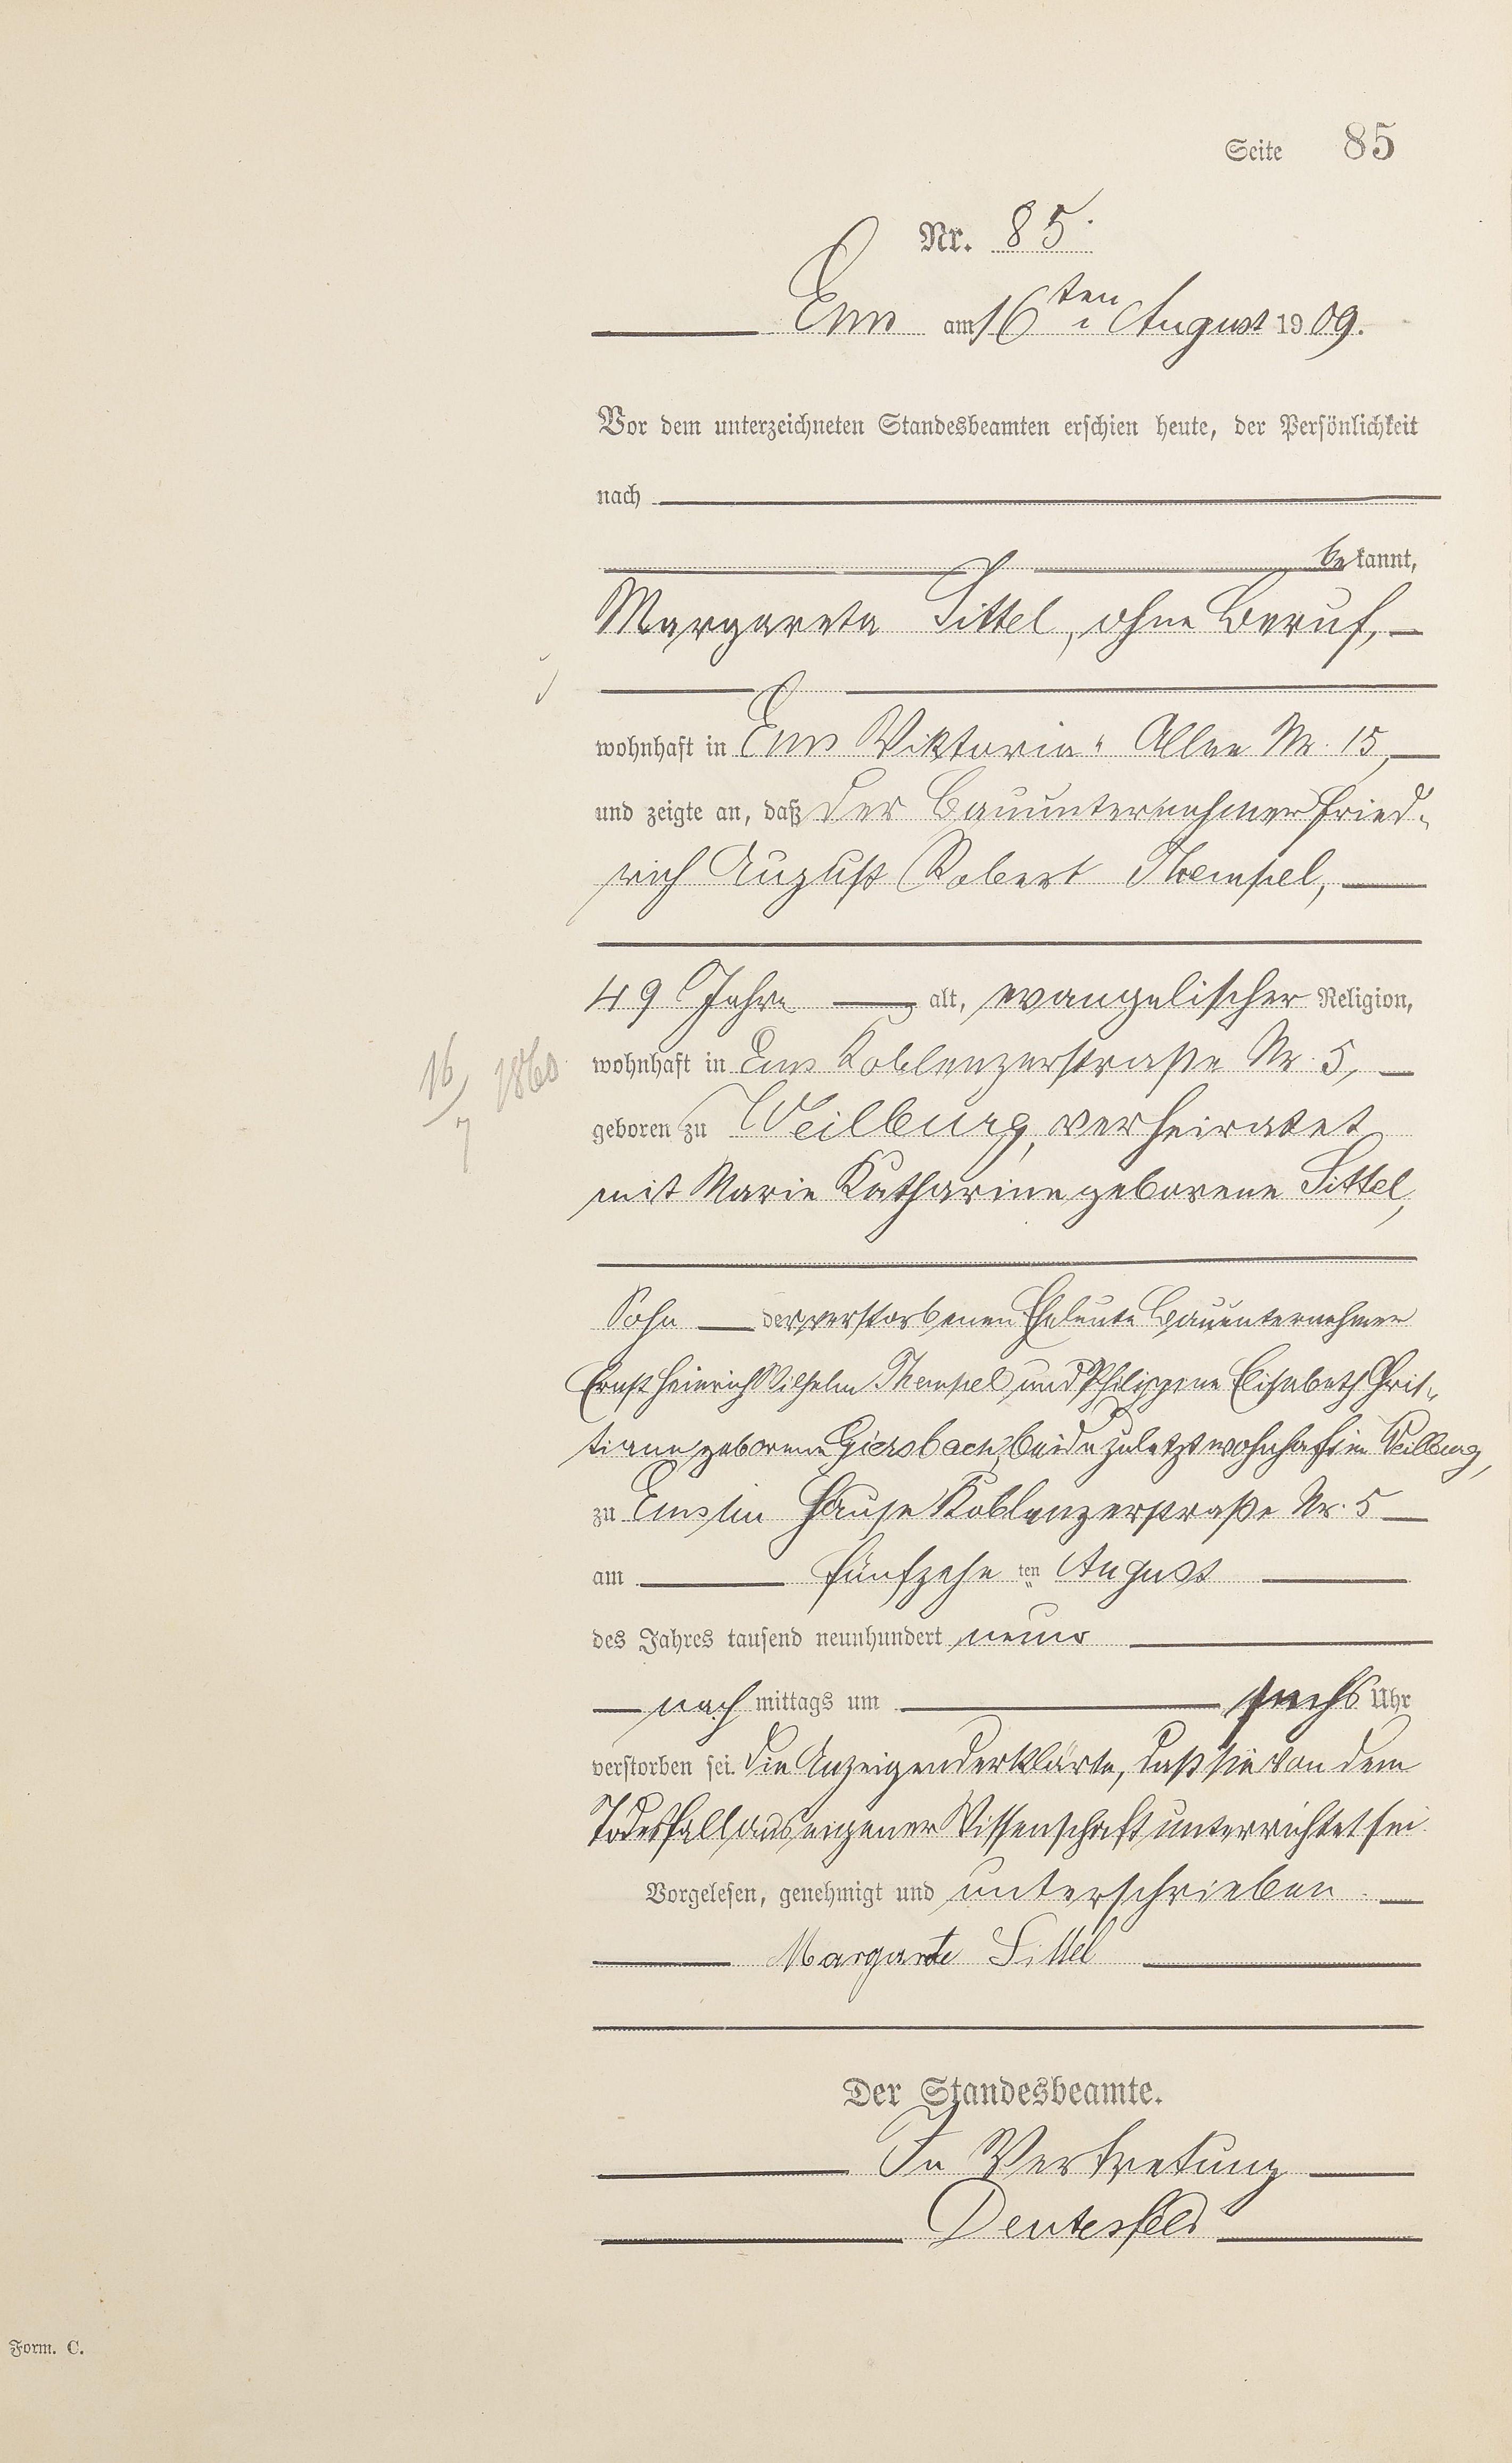 Seite 85
Nr. 85.
Ems am 16ten August 1909.
Vor dem unterzeichneten Standesbeamten erschien heute, der Persönlichkeit
nach
bekannt,
Margareta Sittel, ohne Beruf,
wohnhaft in Ems Viktoria-Allee Nr. 15,
und zeigte an, daß der Bauunternehmer Fried-
rich August Robert Thempel,
49 Jahre alt, evangelischer Religion,
16/7 1860
wohnhaft in Ems Koblenzerstraße Nr. 5,
geboren zu Weilburg, verheiratet
mit Marie Katharine geborene Sittel,
Sohn der verstorbenen Eheleute Bauunternehmer
Ernst Heinrich Wilhelm Thempel und Philippine Elisabeth Chris-
tiane geborene Giersbach, beide zuletzt wohnhaft in Weilburg,
zu Ems im Hause Koblenzerstraße Nr. 5
am fünfzehnten August
des Jahres tausend neunhundert neun
nachmittags um sechs Uhr
verstorben sei. Die Anzeigende erklärte, daß sie von dem
Todesfall aus eigener Wissenschaft unterrichtet sei.
Vorgelesen, genehmigt und unterschrieben.
Margarete Sittel
Der Standesbeamte.
In Vertretung
Deutesfeld
Form. C.